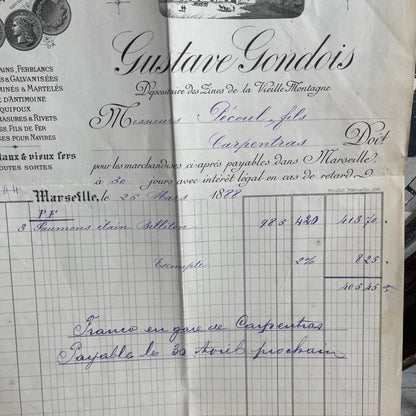 Gustave Gondois
Dépositaire des Zincs de la Vieille Montagne
AINS, FERBLANCS
S & GALVANISÉES
MINÉS & MARTELÉS
E D'ANTIMOINE
QUIFOUX
RASURES & RIVETS
ES, FILS DE FER
SES POUR NAVIRES
TAUX & vieux fers
OUTES SORTES
Messieurs Pécoul & fils
Carpentras Doit
pour les marchandises ci-après payables dans Marseille,
à 30 jours avec intérêt légal en cas de retard.
Marseille, le 25 Mars 1888
PF
3 Saumons étain Billiton 98 5 420 413 70
Escompte 2% 8 25
405 45
Franco en gare de Carpentras
Payable les 30 Avril prochain